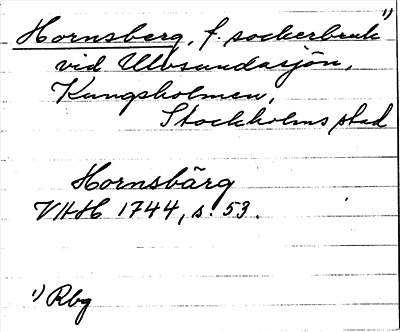 Hornsberg, f. sockerbruk ¹)
vid Ulvsundasjön,
Kungsholmen,
Stockholms stad
Hornsbärg
VHH 1744, s. 53.
¹) Rbg